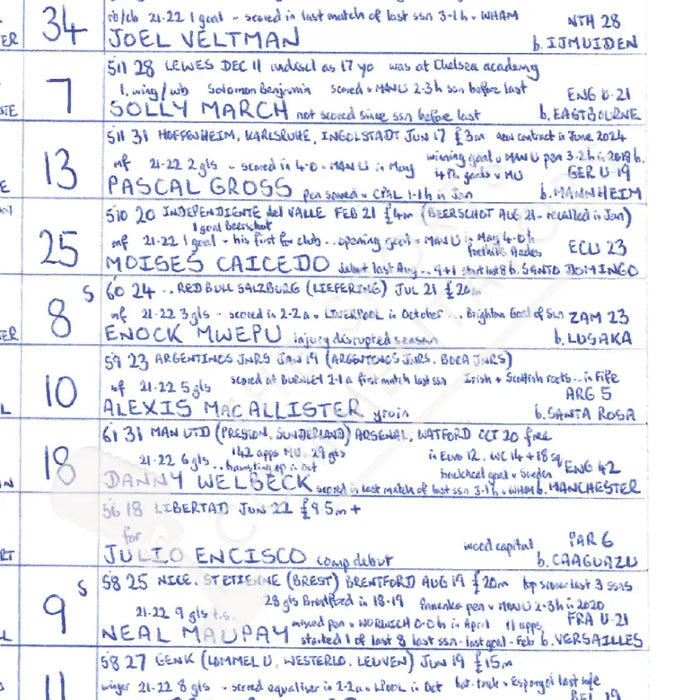 34 rb/cb 21-22 1 goal - scored in last match of last ssn 3-1 h v WHAM NTH 28
JOEL VELTMAN b. IJMUIDEN
5'11 28 LEWES DEC 11 undiscl as 17 yo was at Chelsea academy
7 l. wing/wb Solomon Benjamin scored v MANU 2-3 h ssn before last ENG U-21
SOLLY MARCH not scored since ssn before last b. EASTBOURNE
5'11 31 HOFFENHEIM, KARLSRUHE, INGOLSTADT JUN 17 £3m new contract is June 2024
13 mf 21-22 2 gls - scored in 4-0 v MAN U in May winning goal v MAN U pen 3-2 h in 2018 h.
4 PL goals v MU GER U-19
PASCAL GROSS pen saved v CPAL 1-1 h in Jan b. MANNHEIM
5'10 20 INDEPENDIENTE del VALLE FEB 21 £4m (BEERSCHOT AUG 21 - recalled in Jan)
1 goal Beerschot
25 mf 21-22 1 goal - his first for club .. opening goal v MAN U in May 4-0 h ECU 23
MOISES CAICEDO debut last Aug.. 9+1 start last 8 b. SANTO DOMINGO
8 s 6'0 24 .. RED BULL SALZBURG (LIEFERING) JUL 21 £20m
mf 21-22 3 gls - scored in 2-2 a v LIVERPOOL in October ... Brighton Goal of Ssn ZAM 23
ENOCK MWEPU injury disrupted season b. LUSAKA
5'9 23 ARGENTINOS JNRS JAN 19 (ARGENTINOS JNRS. BOCA JNRS)
10 mf 21-22 5 gls scored at BURNLEY 2-1 a first match last ssn Irish + Scottish roots .. in Fife
ARG 5
ALEXIS MACALLISTER groin b. SANTA ROSA
6'1 31 MAN UTD (PRESTON, SUNDERLAND) ARSENAL, WATFORD OCT 20 free
142 apps MU. 29 gls
18 21-22 6 gls .. hamstring op in Oct in Euro 12. WC 14 + 18 sq
backheel goal v Sweden ENG 42
DANNY WELBECK scored in last match of last ssn 3-1 h v WHAM b. MANCHESTER
5'6 18 LIBERTAD JUN 22 £9.5m +
for
wood capital PAR 6
JULIO ENCISO comp debut b. CAAGUAZU
9 s 5'8 25 NICE, ST ETIENNE (BREST) BRENTFORD AUG 19 £20m top scorer last 3 ssns
28 gls Brentford in 18-19 Panenka pen v MAN U 2-3 h in 2020
21-22 9 gls t.s. missed pen v NORWICH 0-0 h in April 11 apps FRA U-21
NEAL MAUPAY started 1 of last 8 last ssn - last goal - Feb b. VERSAILLES
5'8 27 GENK (LOMMEL U, WESTERLO, LEUVEN) JUN 19 £15m
11 winger 21-22 8 gls - scored equaliser in 2-2 a v LPOOL in Oct hat-trick v Espanyol last wk